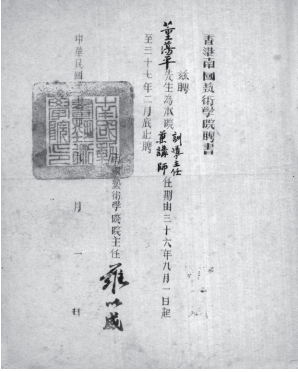 香港南國藝術學院聘書
茲聘
董蕩平先生為本院訓導主任兼講師任期由三十六年八月一日起
至三十七年二月底止聘
藝術學院院主任 羅以威
中華民國 月 一 日